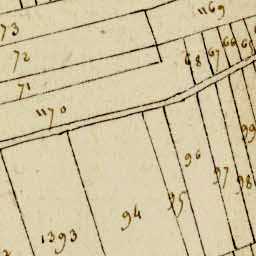 1169
73
72
66
67
68
71
1170
99
96
97
98
95
94
1393